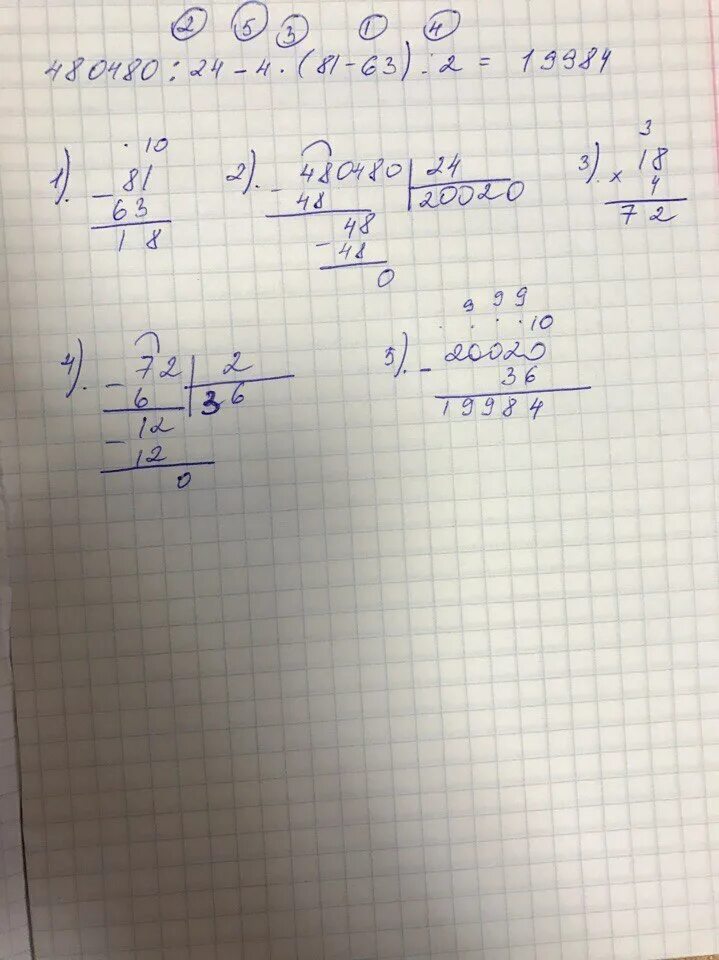 2 5 3 1 4
480480 : 24 - 4 · (81 - 63) : 2 = 19984
1). 2). 3).
· 10
- 81
63
18
- 480480 24
48 20020
- 48
48
0
3
× 18
4
72
4). 5).
- 72 2
6 36
- 12
12
0
9 9 9
· · · · 10
- 20020
36
19984